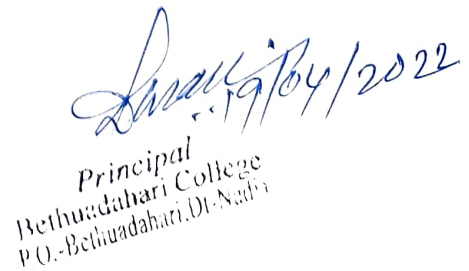 19/04/2022
Principal
Bethuadahari College
P.O.-Bethuadahari, Dt-Nadia